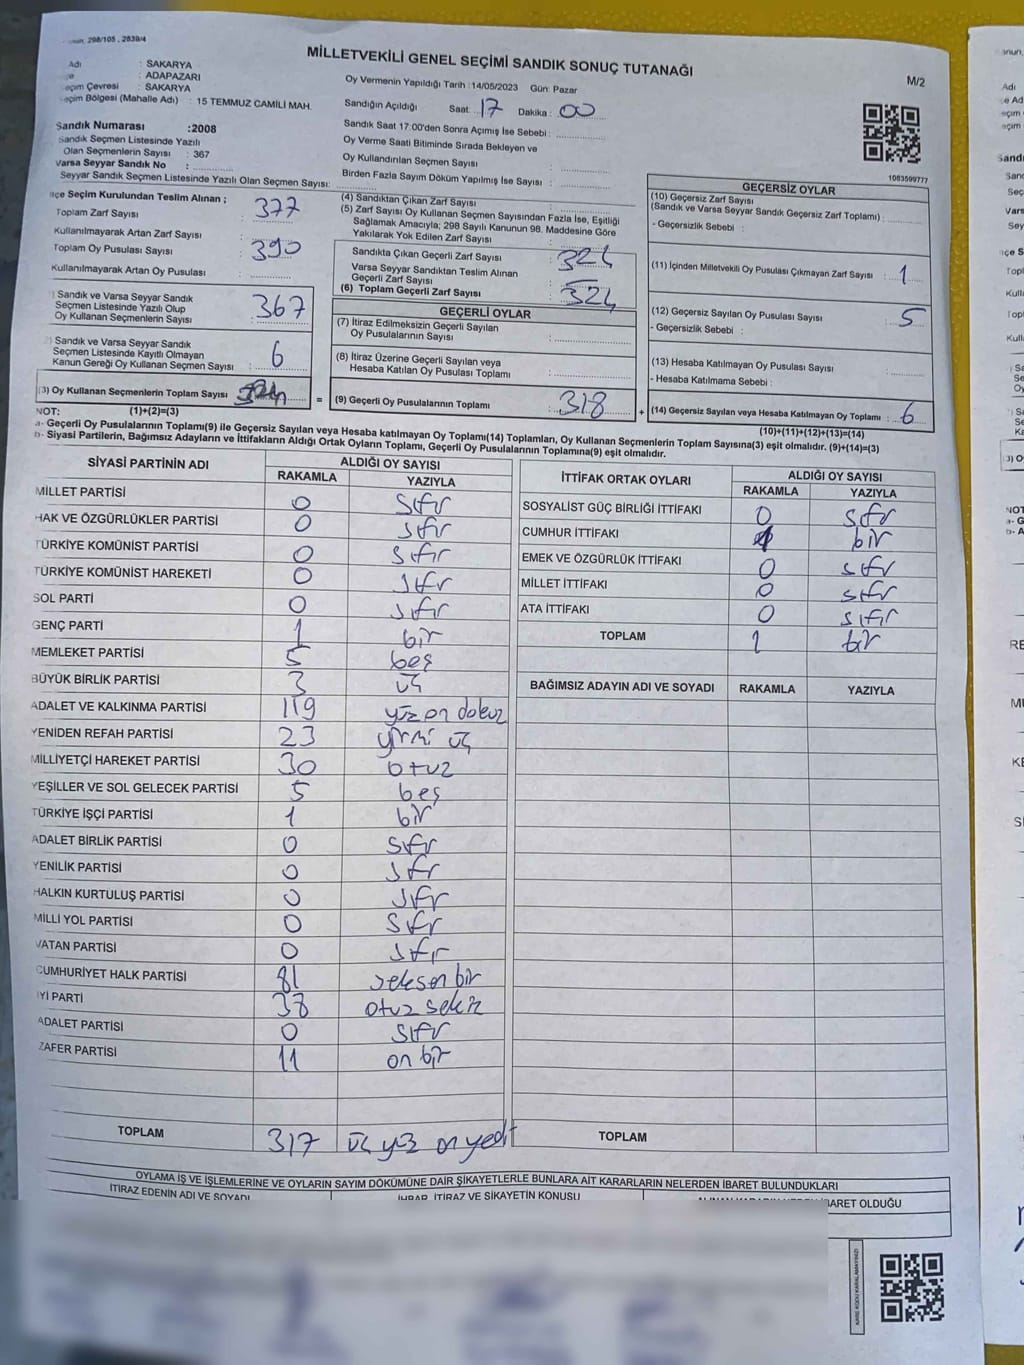 298/105, 2839/4
MİLLETVEKİLİ GENEL SEÇİMİ SANDIK SONUÇ TUTANAĞI
M/2
Adı : SAKARYA
: ADAPAZARI
eçim Çevresi : SAKARYA
eçim Bölgesi (Mahalle Adı) : 15 TEMMUZ CAMİLİ MAH.
Sandık Numarası :2008
Sandık Seçmen Listesinde Yazılı
Olan Seçmenlerin Sayısı : 367
Varsa Seyyar Sandık No :
Seyyar Sandık Seçmen Listesinde Yazılı Olan Seçmen Sayısı:
Oy Vermenin Yapıldığı Tarih :14/05/2023 Gün: Pazar
Sandığın Açıldığı Saat: 17 Dakika : 00
Sandık Saat 17:00'den Sonra Açımış İse Sebebi :
Oy Verme Saati Bitiminde Sırada Bekleyen ve
Oy Kullandırılan Seçmen Sayısı :
Birden Fazla Sayım Döküm Yapılmış İse Sayısı :
1083599777
lçe Seçim Kurulundan Teslim Alınan ;
Toplam Zarf Sayısı : 377
Kullanılmayarak Artan Zarf Sayısı
Toplam Oy Pusulası Sayısı : 390
Kullanılmayarak Artan Oy Pusulası
) Sandık ve Varsa Seyyar Sandık
Seçmen Listesinde Yazılı Olup
Oy Kullanan Seçmenlerin Sayısı : 367
) Sandık ve Varsa Seyyar Sandık
Seçmen Listesinde Kayıtlı Olmayan
Kanun Gereği Oy Kullanan Seçmen Sayısı : 6
(3) Oy Kullanan Seçmenlerin Toplam Sayısı
(4) Sandıktan Çıkan Zarf Sayısı :
(5) Zarf Sayısı Oy Kullanan Seçmen Sayısından Fazla İse, Eşitliği
Sağlamak Amacıyla; 298 Sayılı Kanunun 98. Maddesine Göre
Yakılarak Yok Edilen Zarf Sayısı :
Sandıkta Çıkan Geçerli Zarf Sayısı : 324
Varsa Seyyar Sandıktan Teslim Alınan
Geçerli Zarf Sayısı :
(6) Toplam Geçerli Zarf Sayısı : 324
GEÇERLİ OYLAR
(7) İtiraz Edilmeksizin Geçerli Sayılan
Oy Pusulalarının Sayısı :
(8) İtiraz Üzerine Geçerli Sayılan veya
Hesaba Katılan Oy Pusulası Toplamı :
= (9) Geçerli Oy Pusulalarının Toplamı : 318
GEÇERSİZ OYLAR
(10) Geçersiz Zarf Sayısı
(Sandık ve Varsa Seyyar Sandık Geçersiz Zarf Toplamı) :
- Geçersizlik Sebebi :
(11) İçinden Milletvekili Oy Pusulası Çıkmayan Zarf Sayısı : 1
(12) Geçersiz Sayılan Oy Pusulası Sayısı : 5
- Geçersizlik Sebebi :
(13) Hesaba Katılmayan Oy Pusulası Sayısı :
- Hesaba Katılmama Sebebi :
+ (14) Geçersiz Sayılan veya Hesaba Katılmayan Oy Toplamı : 6
NOT: (1)+(2)=(3)
(10)+(11)+(12)+(13)=(14)
a- Geçerli Oy Pusulalarının Toplamı(9) ile Geçersiz Sayılan veya Hesaba katılmayan Oy Toplamı(14) Toplamları, Oy Kullanan Seçmenlerin Toplam Sayısına(3) eşit olmalıdır. (9)+(14)=(3)
b- Siyasi Partilerin, Bağımsız Adayların ve İttifakların Aldığı Ortak Oyların Toplamı, Geçerli Oy Pusulalarının Toplamına(9) eşit olmalıdır.
SİYASİ PARTİNİN ADI ALDIĞI OY SAYISI
RAKAMLA YAZIYLA
MİLLET PARTİSİ 0 sıfır
HAK VE ÖZGÜRLÜKLER PARTİSİ 0 sıfır
TÜRKİYE KOMÜNİST PARTİSİ 0 sıfır
TÜRKİYE KOMÜNİST HAREKETİ 0 sıfır
SOL PARTİ 0 sıfır
GENÇ PARTİ 1 bir
MEMLEKET PARTİSİ 5 beş
BÜYÜK BİRLİK PARTİSİ 3 üç
ADALET VE KALKINMA PARTİSİ 119 yüz on dokuz
YENİDEN REFAH PARTİSİ 23 yirmi üç
MİLLİYETÇİ HAREKET PARTİSİ 30 otuz
YEŞİLLER VE SOL GELECEK PARTİSİ 5 beş
TÜRKİYE İŞÇİ PARTİSİ 1 bir
ADALET BİRLİK PARTİSİ 0 sıfır
YENİLİK PARTİSİ 0 sıfır
HALKIN KURTULUŞ PARTİSİ 0 sıfır
MİLLİ YOL PARTİSİ 0 sıfır
VATAN PARTİSİ 0 sıfır
CUMHURİYET HALK PARTİSİ 81 seksen bir
İYİ PARTİ 38 otuz sekiz
ADALET PARTİSİ 0 sıfır
ZAFER PARTİSİ 11 on bir
TOPLAM 317 üç yüz on yedi
İTTİFAK ORTAK OYLARI ALDIĞI OY SAYISI
RAKAMLA YAZIYLA
SOSYALİST GÜÇ BİRLİĞİ İTTİFAKI 0 sıfır
CUMHUR İTTİFAKI 1 bir
EMEK VE ÖZGÜRLÜK İTTİFAKI 0 sıfır
MİLLET İTTİFAKI 0 sıfır
ATA İTTİFAKI 0 sıfır
TOPLAM 1 bir
BAĞIMSIZ ADAYIN ADI VE SOYADI RAKAMLA YAZIYLA
TOPLAM
OYLAMA İŞ VE İŞLEMLERİNE VE OYLARIN SAYIM DÖKÜMÜNE DAİR ŞİKAYETLERLE BUNLARA AİT KARARLARIN NELERDEN İBARET BULUNDUKLARI
İTİRAZ EDENİN ADI VE SOYADI İHBAR, İTİRAZ VE ŞİKAYETİN KONUSU İBARET OLDUĞU
KARE KODU KARALAMAYINIZ!